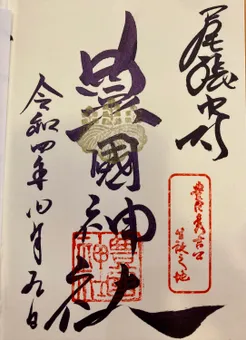 尾張中村
豊國神社
豊臣秀吉公
生誕之地
豊國
神社
令和四年四月九日